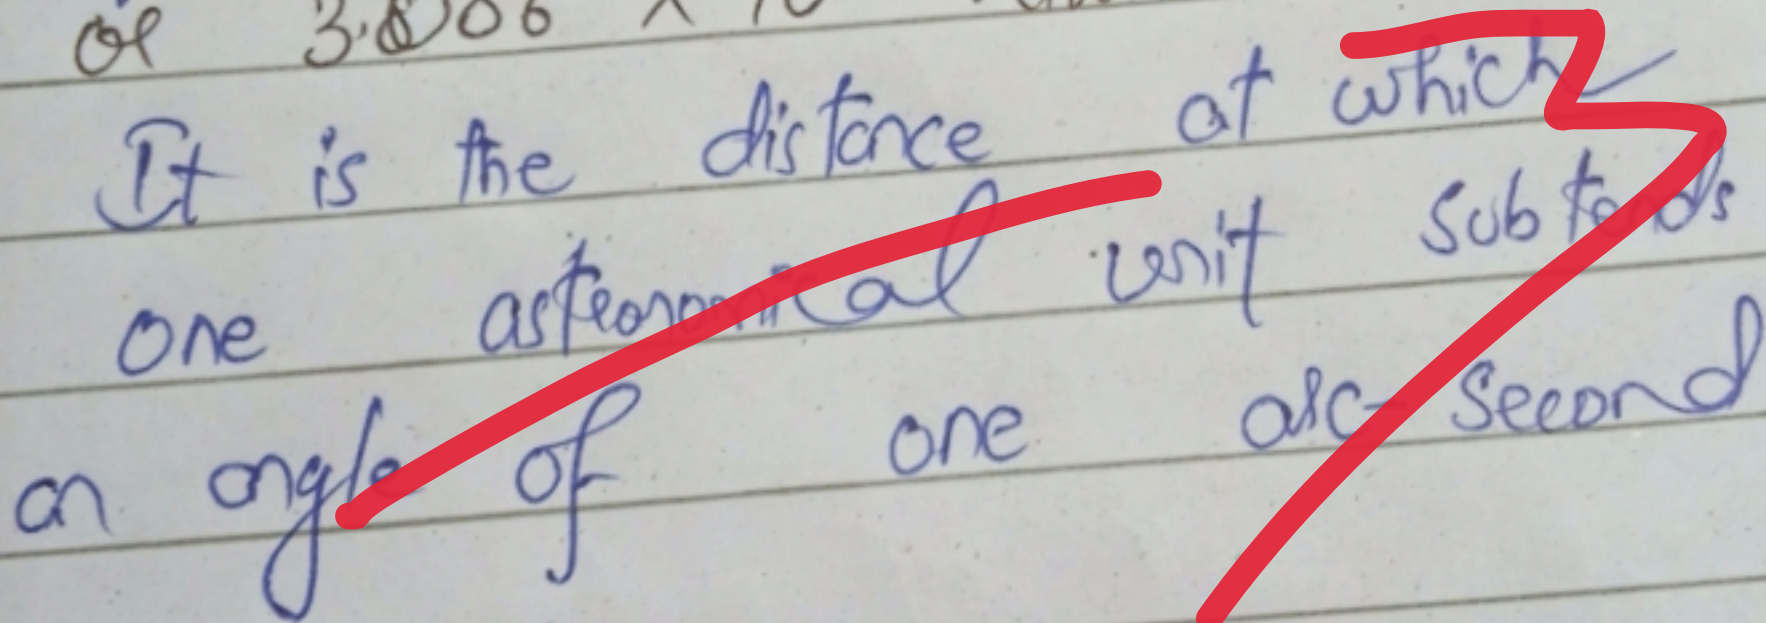 or 3.806 × 10
It is the distance at which
one astronomical unit subtends
an angle of one arc-second